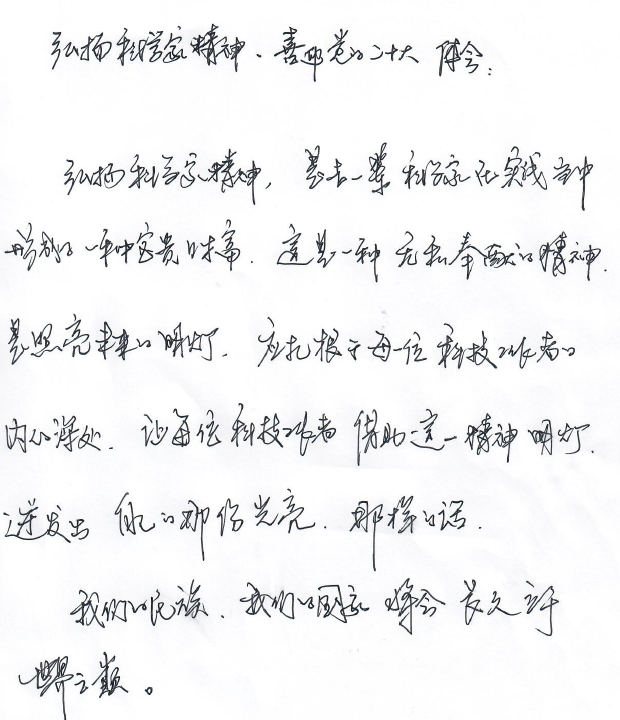 弘扬科学家精神、喜迎党的二十大 体会：
弘扬科学家精神，是老一辈科学家在实践当中
形成的一种宝贵财富．这是一种无私奉献的精神．
是照亮未来的明灯．应扎根于每一位科技工作者的
内心深处．让每位科技工作者借助这一精神明灯．
迸发出自己的那份光亮．那样的话．
我们的民族．我们的国家将会长久立于
世界之巅。